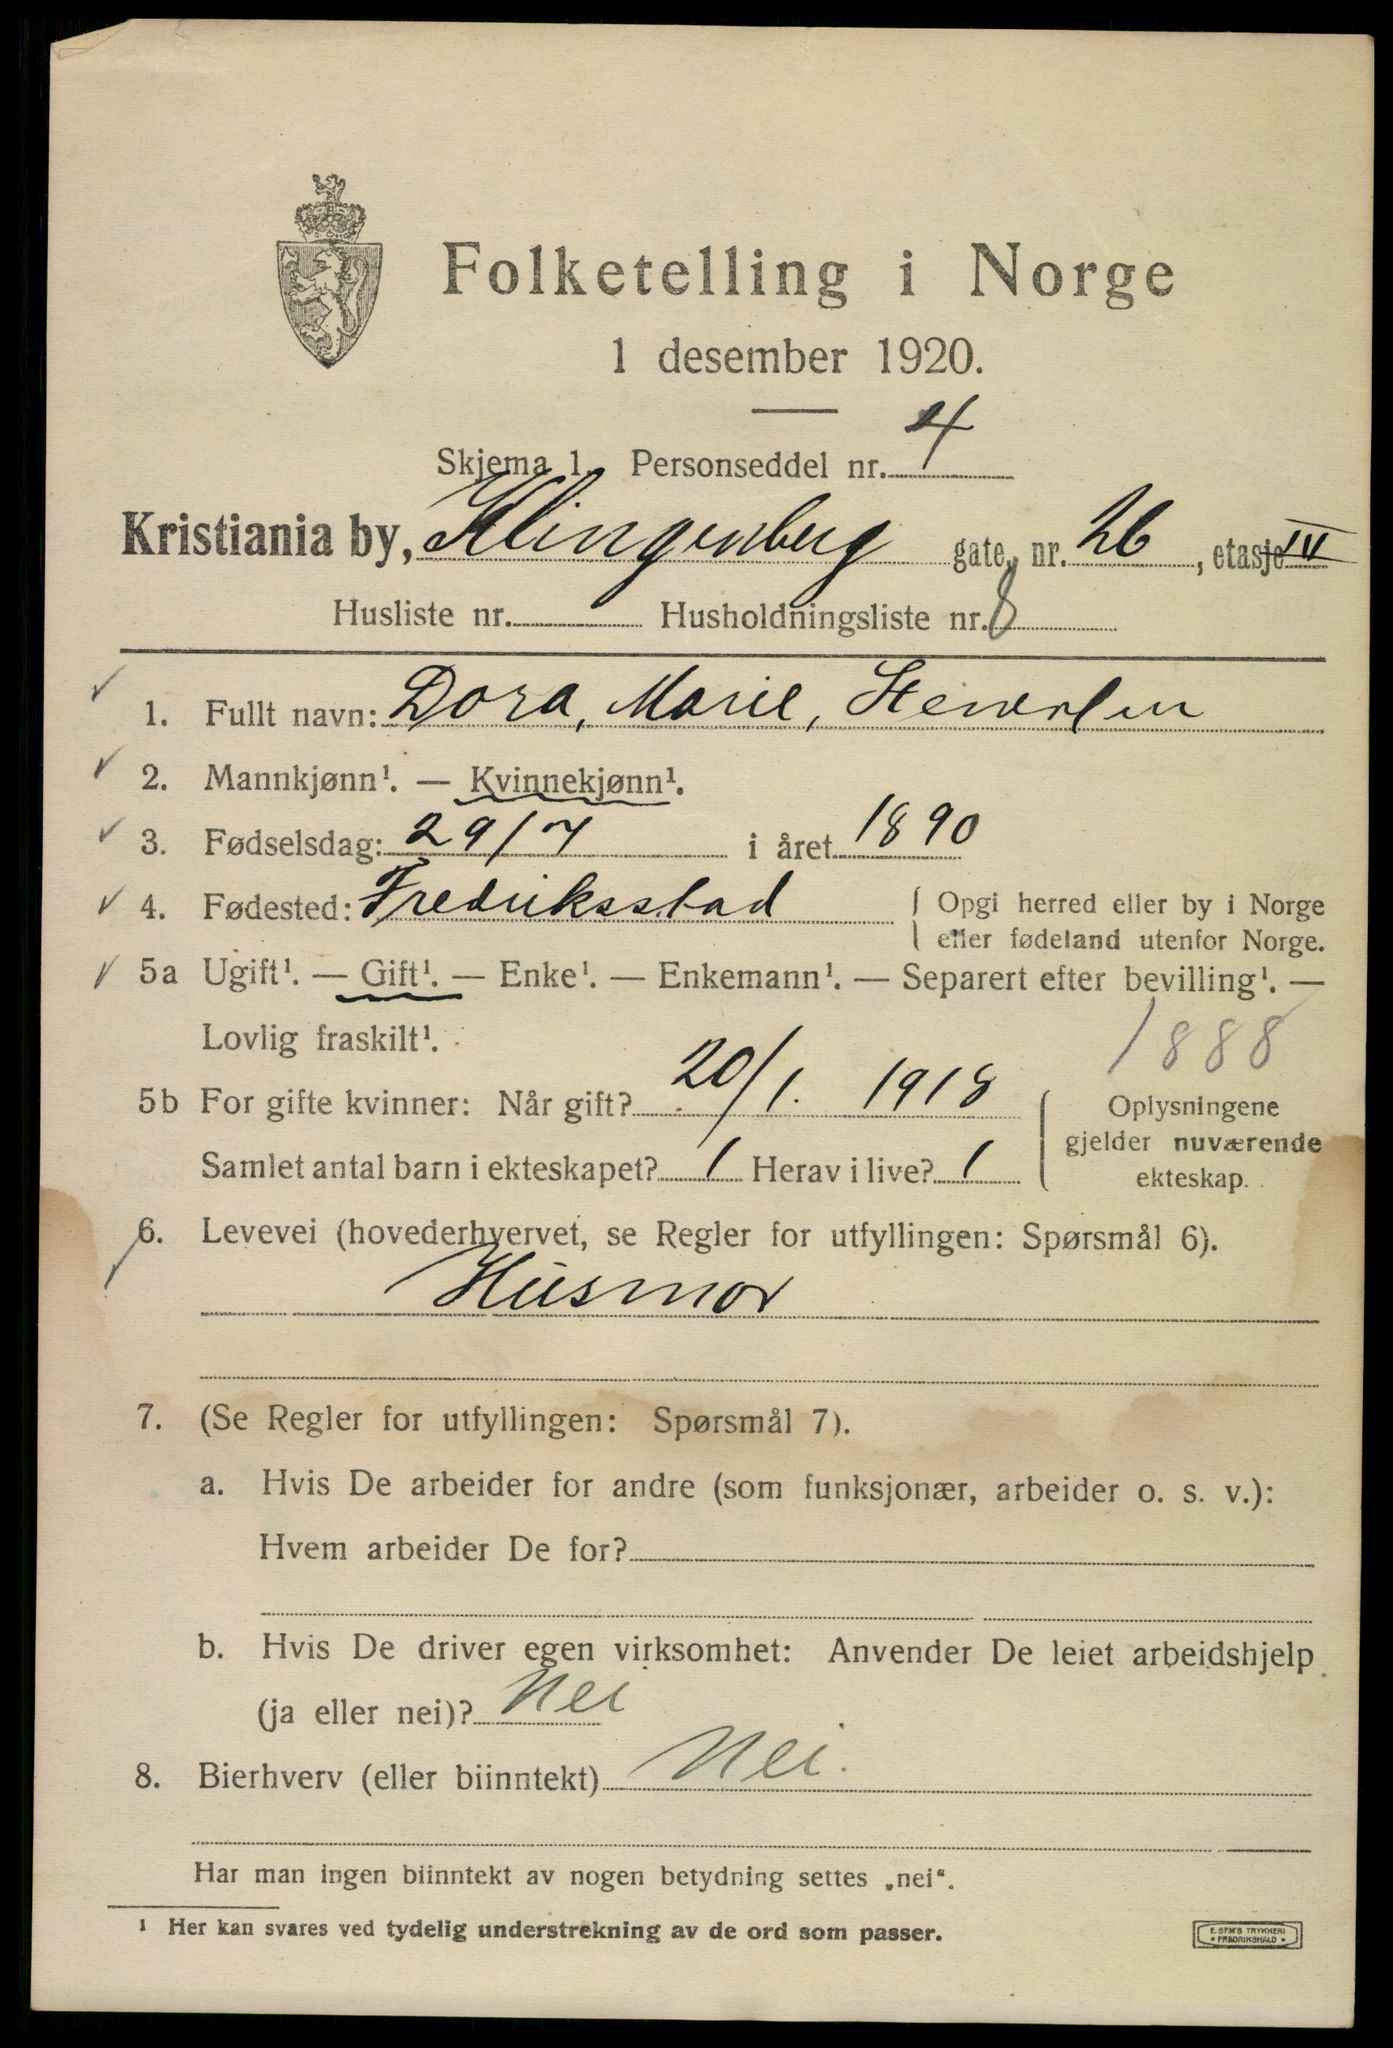 Folketelling i Norge
1 desember 1920.
Skjema 1. Personseddel nr. 4
Kristiania by, Klingenberg gate, nr. 26, etasje IV
Husliste nr. Husholdningsliste nr. 8
1. Fullt navn: Dora, Marie,
2. Mannkjønn¹. — Kvinnekjønn¹.
3. Fødselsdag: 29/7 i året 1890
4. Fødested: Fredriksstad { Opgi herred eller by i Norge
eller fødeland utenfor Norge.
5a Ugift¹. — Gift¹. — Enke¹. — Enkemann¹. — Separert efter bevilling¹. —
Lovlig fraskilt¹. 1888
5b For gifte kvinner: Når gift? 20/1. 1918 { Oplysningene
gjelder nuværende
Samlet antal barn i ekteskapet? 1 Herav i live? 1 ekteskap.
6. Levevei (hovederhvervet, se Regler for utfyllingen: Spørsmål 6).
Husmor
7. (Se Regler for utfyllingen: Spørsmål 7).
a. Hvis De arbeider for andre (som funksjonær, arbeider o. s. v.):
Hvem arbeider De for?
b. Hvis De driver egen virksomhet: Anvender De leiet arbeidshjelp
(ja eller nei)? Nei
8. Bierhverv (eller biinntekt) Nei.
Har man ingen biinntekt av nogen betydning settes „nei“.
¹ Her kan svares ved tydelig understrekning av de ord som passer.
E. SEM'S TRYKKERI
* FREDRIKSHALD *